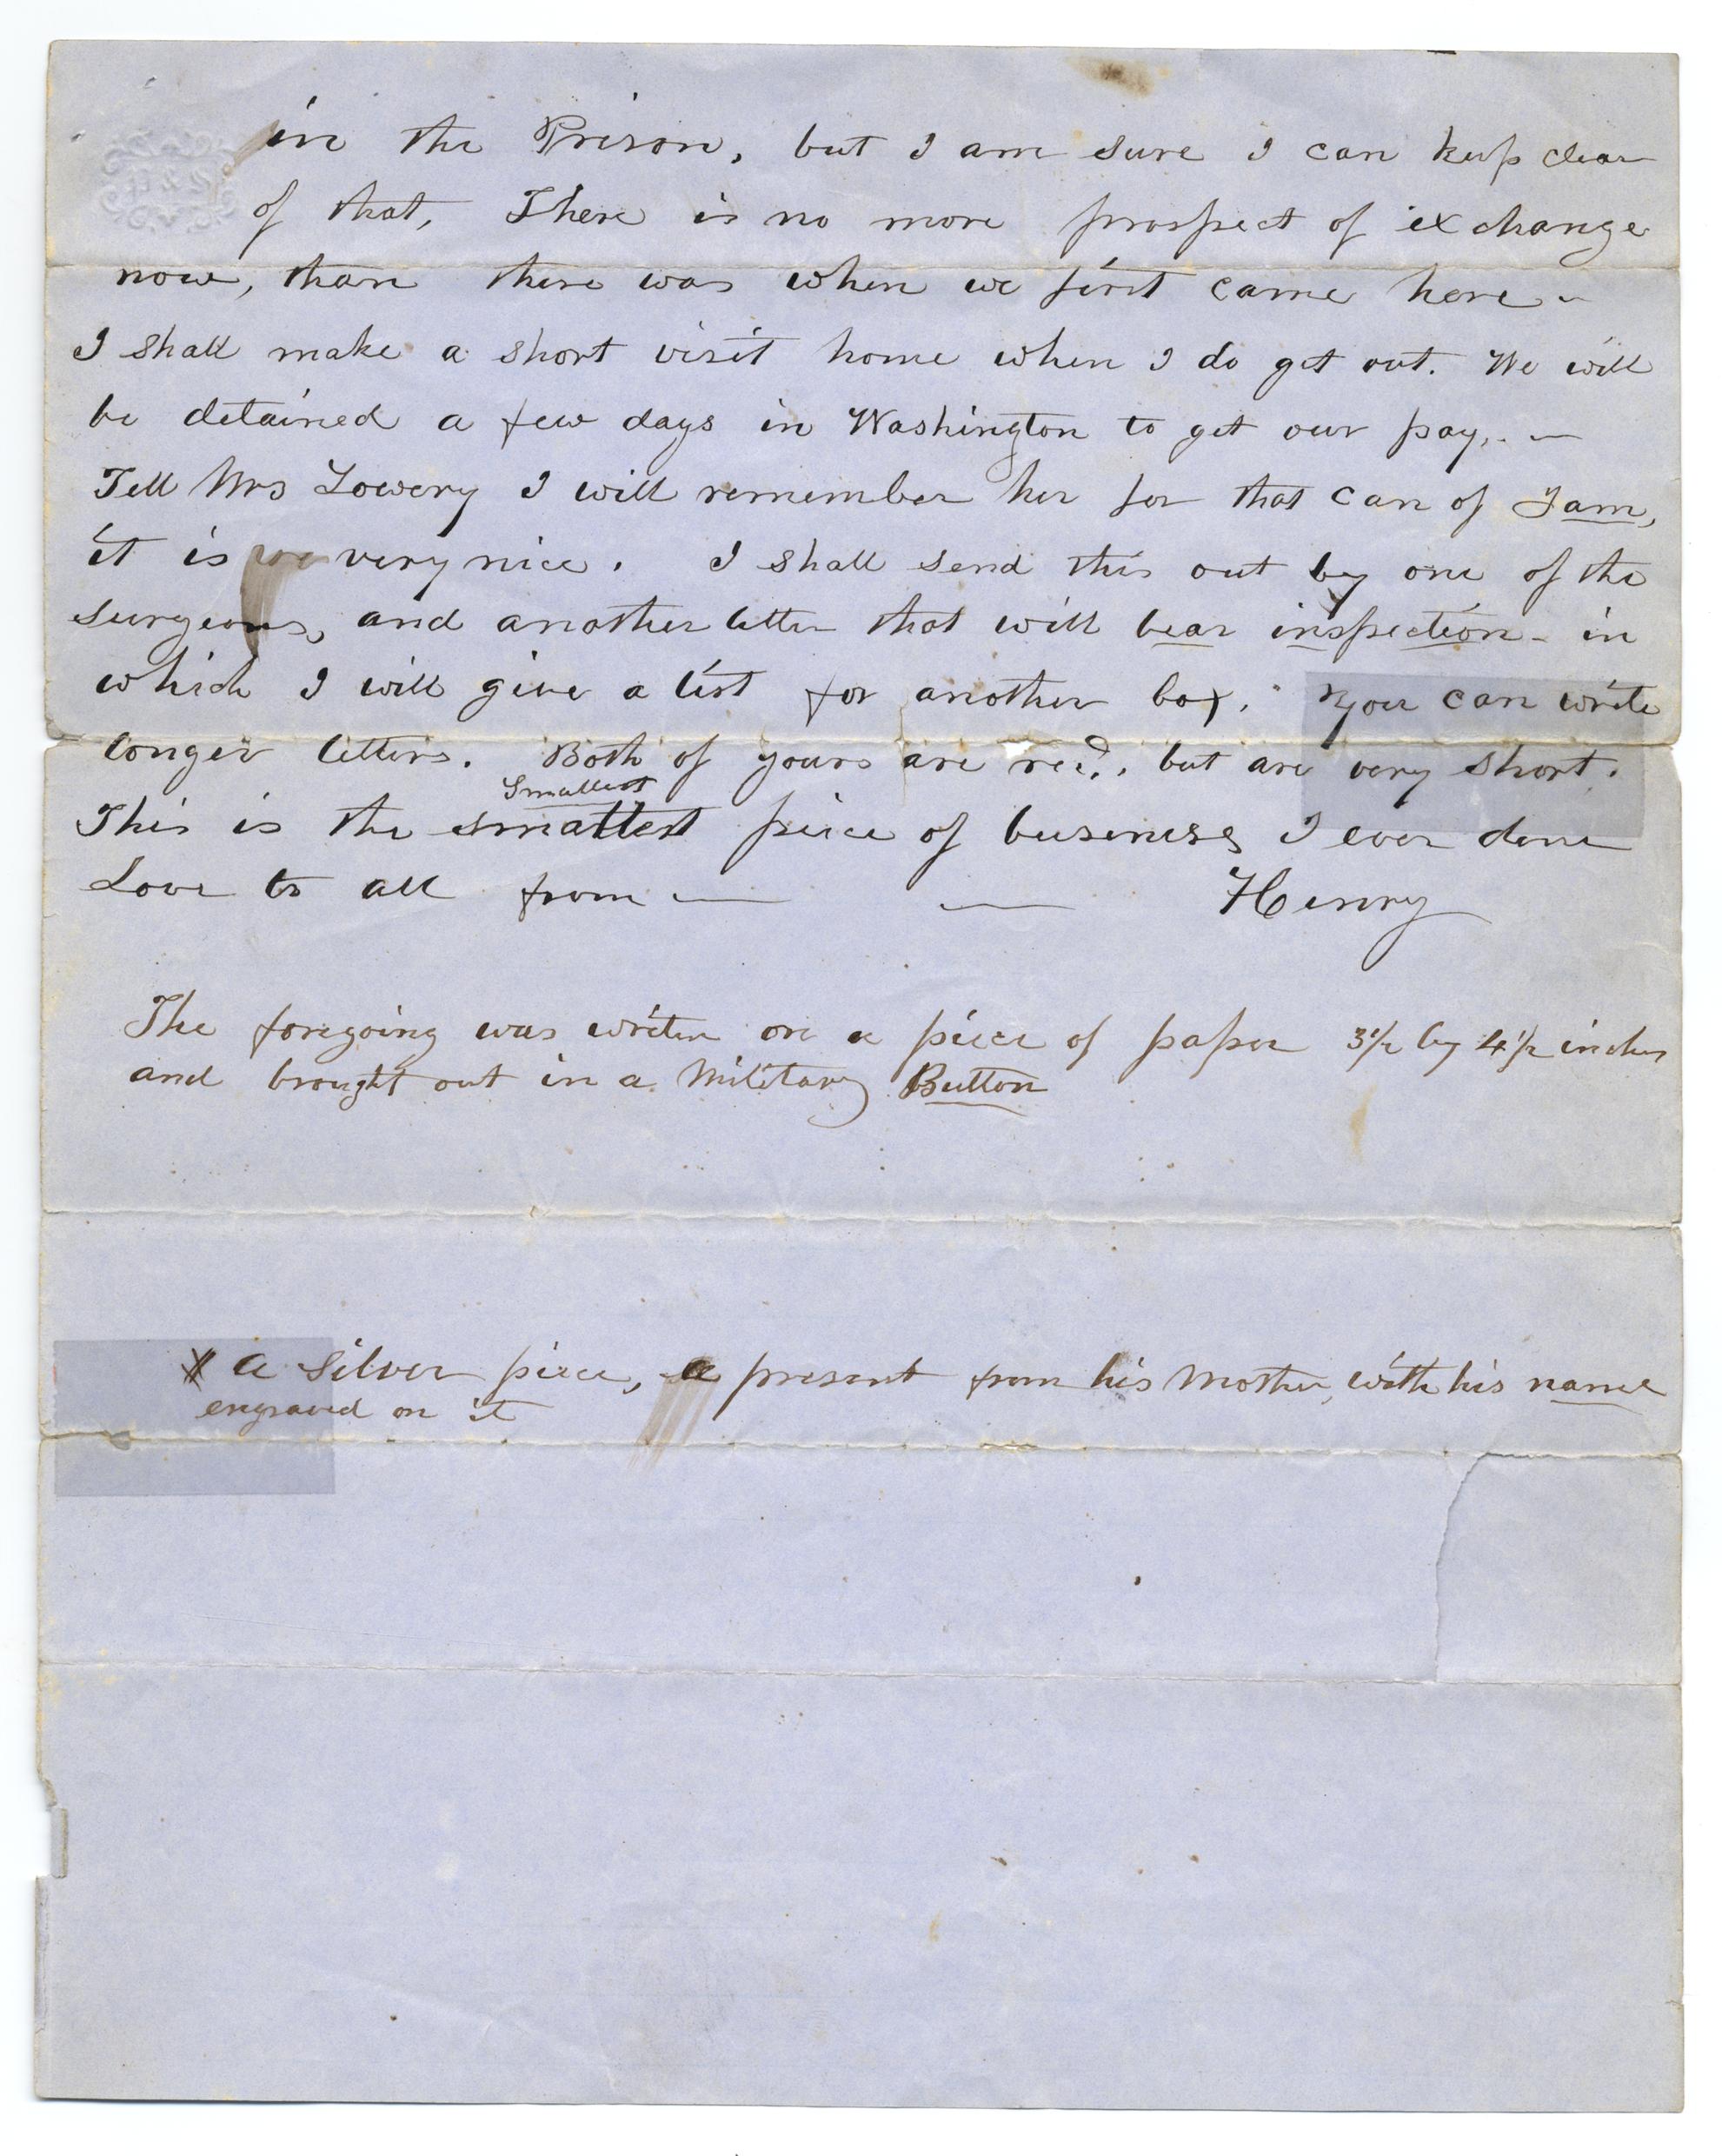 in the Prison, but I am sure I can keep clear
of that, There is no more prospect of exchange
now, than there was when we first came here -
I shall make a short visit home when I do get out. We will
be detained a few days in Washington to get our pay, . -
Tell Mrs Lowery I will remember her for that can of Jam,
it is very nice. I shall send this out by one of the
surgeons, and another letter that will bear inspection - in
which I will give a list for another box. You can write
longer letters. Both of yours are recd., but are very short.
Smallest
This is the smallest piece of business I ever done
Love to all from — — Henry
The foregoing was writen on a piece of paper 3 1/2 by 4 1/2 inches
and brought out in a Military Button
X a Silver piece, a present from his Mother, with his name
engraved on it